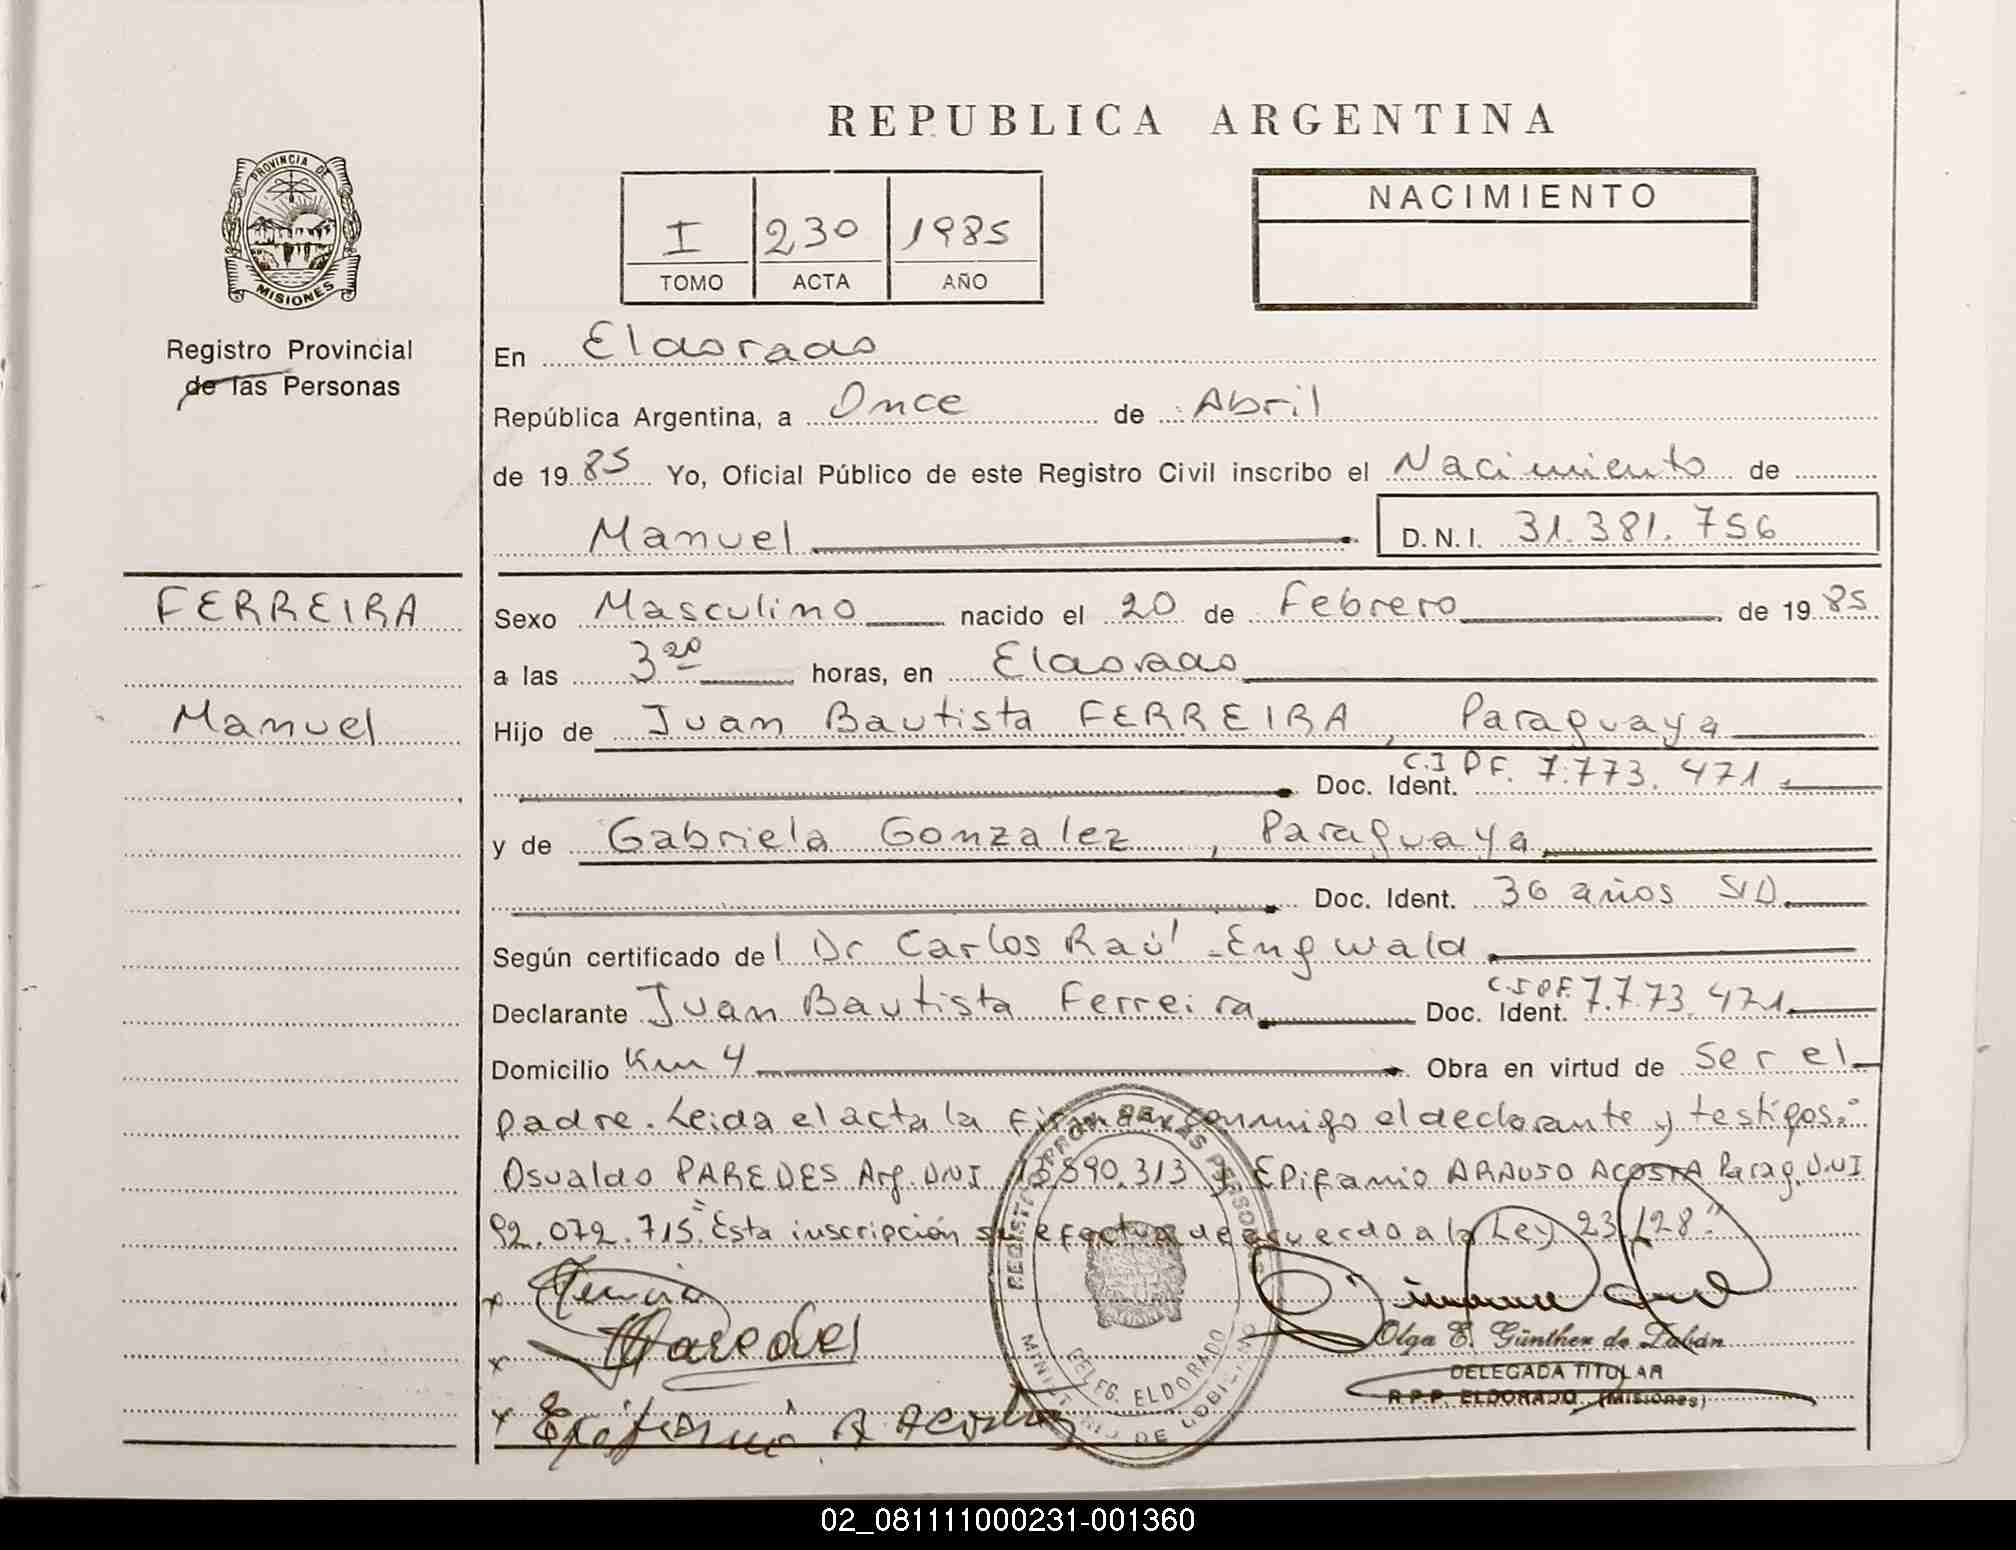 REPUBLICA ARGENTINA
PROVINCIA DE
MISIONES
Registro Provincial
de las Personas
I 230 1985
TOMO ACTA AÑO
NACIMIENTO
En Eldorado
República Argentina, a Once de Abril
de 1985 Yo, Oficial Público de este Registro Civil inscribo el Nacimiento de
Manuel D.N.I. 31.381.756
FERREIRA
Manuel
Sexo Masculino nacido el 20 de Febrero de 1985
a las 3 20 horas, en Eldorado
Hijo de Juan Bautista FERREIRA, Paraguaya
Doc. Ident. C.I P.F. 7.773.471
y de Gabriela Gonzalez, Paraguaya
Doc. Ident. 36 años S/D
Según certificado del Dr Carlos Raúl Engwald
Declarante Juan Bautista Ferreira Doc. Ident. C.I P.F. 7.773.471
Domicilio Km 4 Obra en virtud de Ser el
padre. Leida el acta la firman conmigo el declarante y testigos:
Osvaldo PAREDES Arg. DNI 13.890.313 y Epifanio ARAUJO ACOSTA Parag. DNI
92.072.715 "Esta inscripción se efectua de acuerdo a la Ley 23128"
Paredes
Olga E. Günther de
DELEGADA TITULAR
R.P.P. ELDORADO (Misiones)
REGISTRO PROV. DE LAS PERSONAS
DELEG. ELDORADO
MINISTERIO DE GOBIERNO
02_081111000231-001360